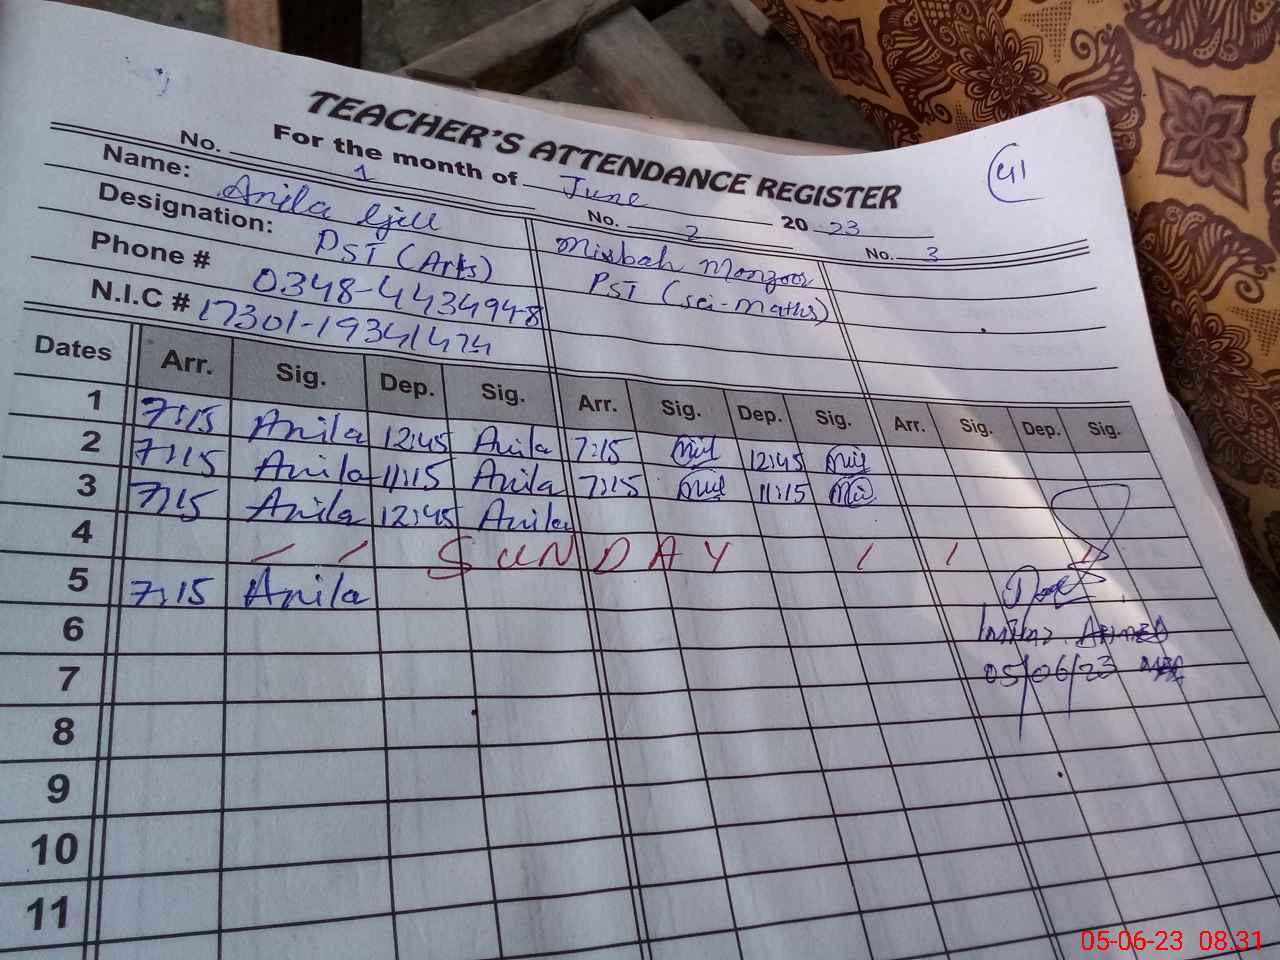 41
TEACHER'S ATTENDANCE REGISTER
For the month of June 2023
No. 1 No. 2 No. 3
Name: Anila Gill Misbah Manzoor
Designation: PST (Arts) PST (sci-maths)
Phone # 0348-4434948
N.I.C # 17301-1934
Dates Arr. Sig. Dep. Sig. Arr. Sig. Dep. Sig. Arr. Sig. Dep. Sig.
1 7:15 Anila 12:45 Anila 7:15 12:45
2 7:15 Anila 11:15 Anila 7:15 11:15
3 7:15 Anila 12:45 Anila
4 SUNDAY
5 7:15 Anila
6
05/06/23
7
8
9
10
11
05-06-23 08:31